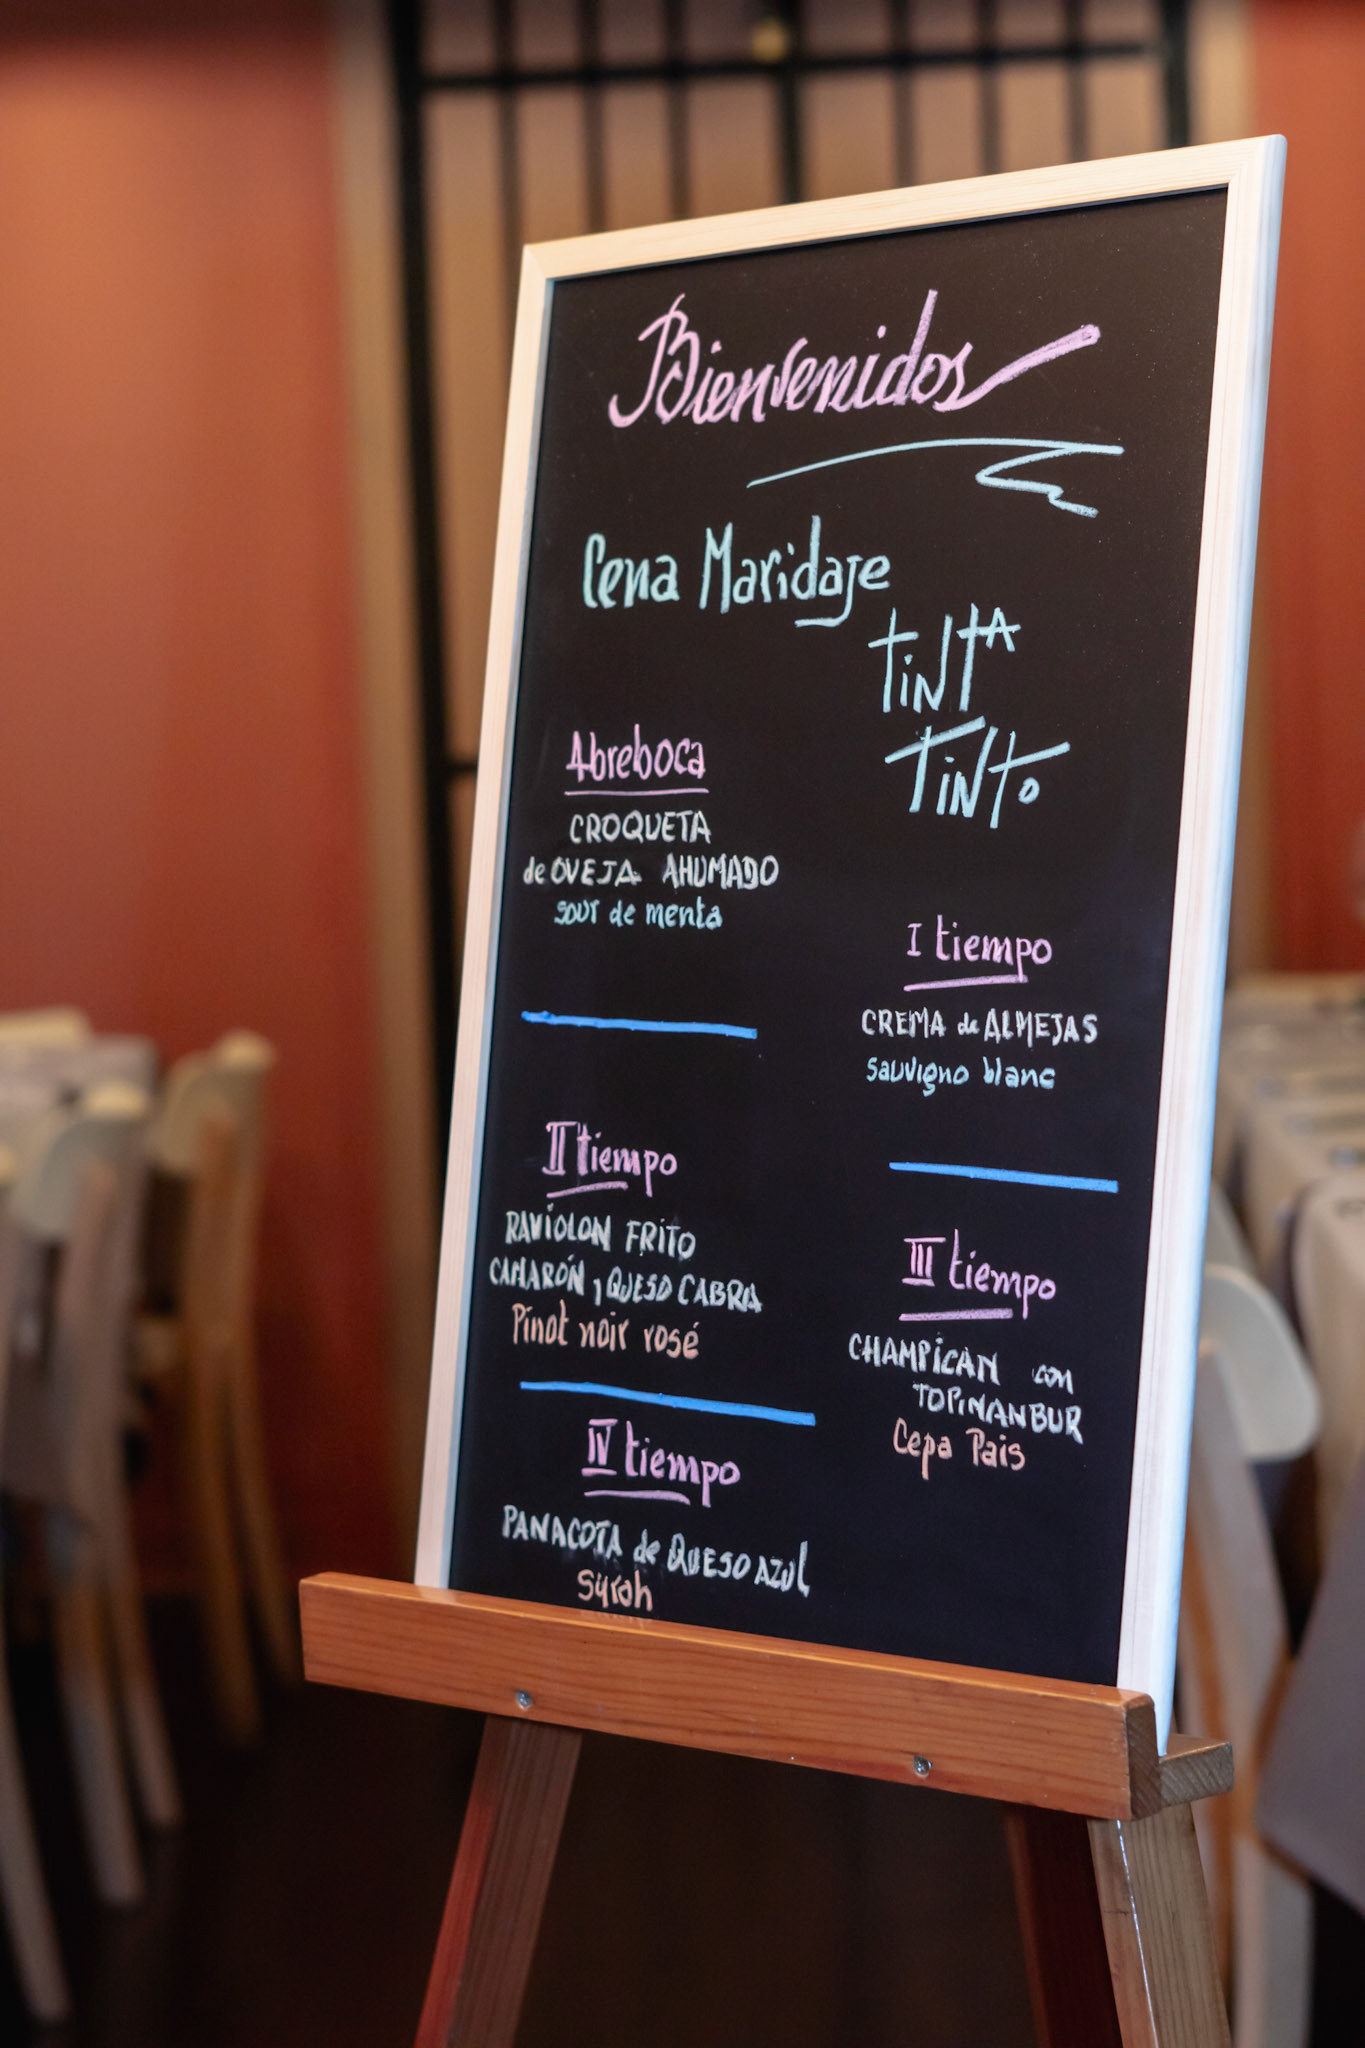 Bienvenidos
Cena Maridaje
tintA
TiNTo
Abreboca
CROQUETA
de OVEJA AHUMADO
sour de menta
I tiempo
CREMA de ALMEJAS
sauvigno blanc
II tiempo
RAVIOLON FRITO
CAMARÓN y QUESO CABRA
Pinot noir rosé
III tiempo
CHAMPiCAN con
TOPINANBUR
Cepa Pais
IV tiempo
PANACOTA de QUESO AZUL
Syrah